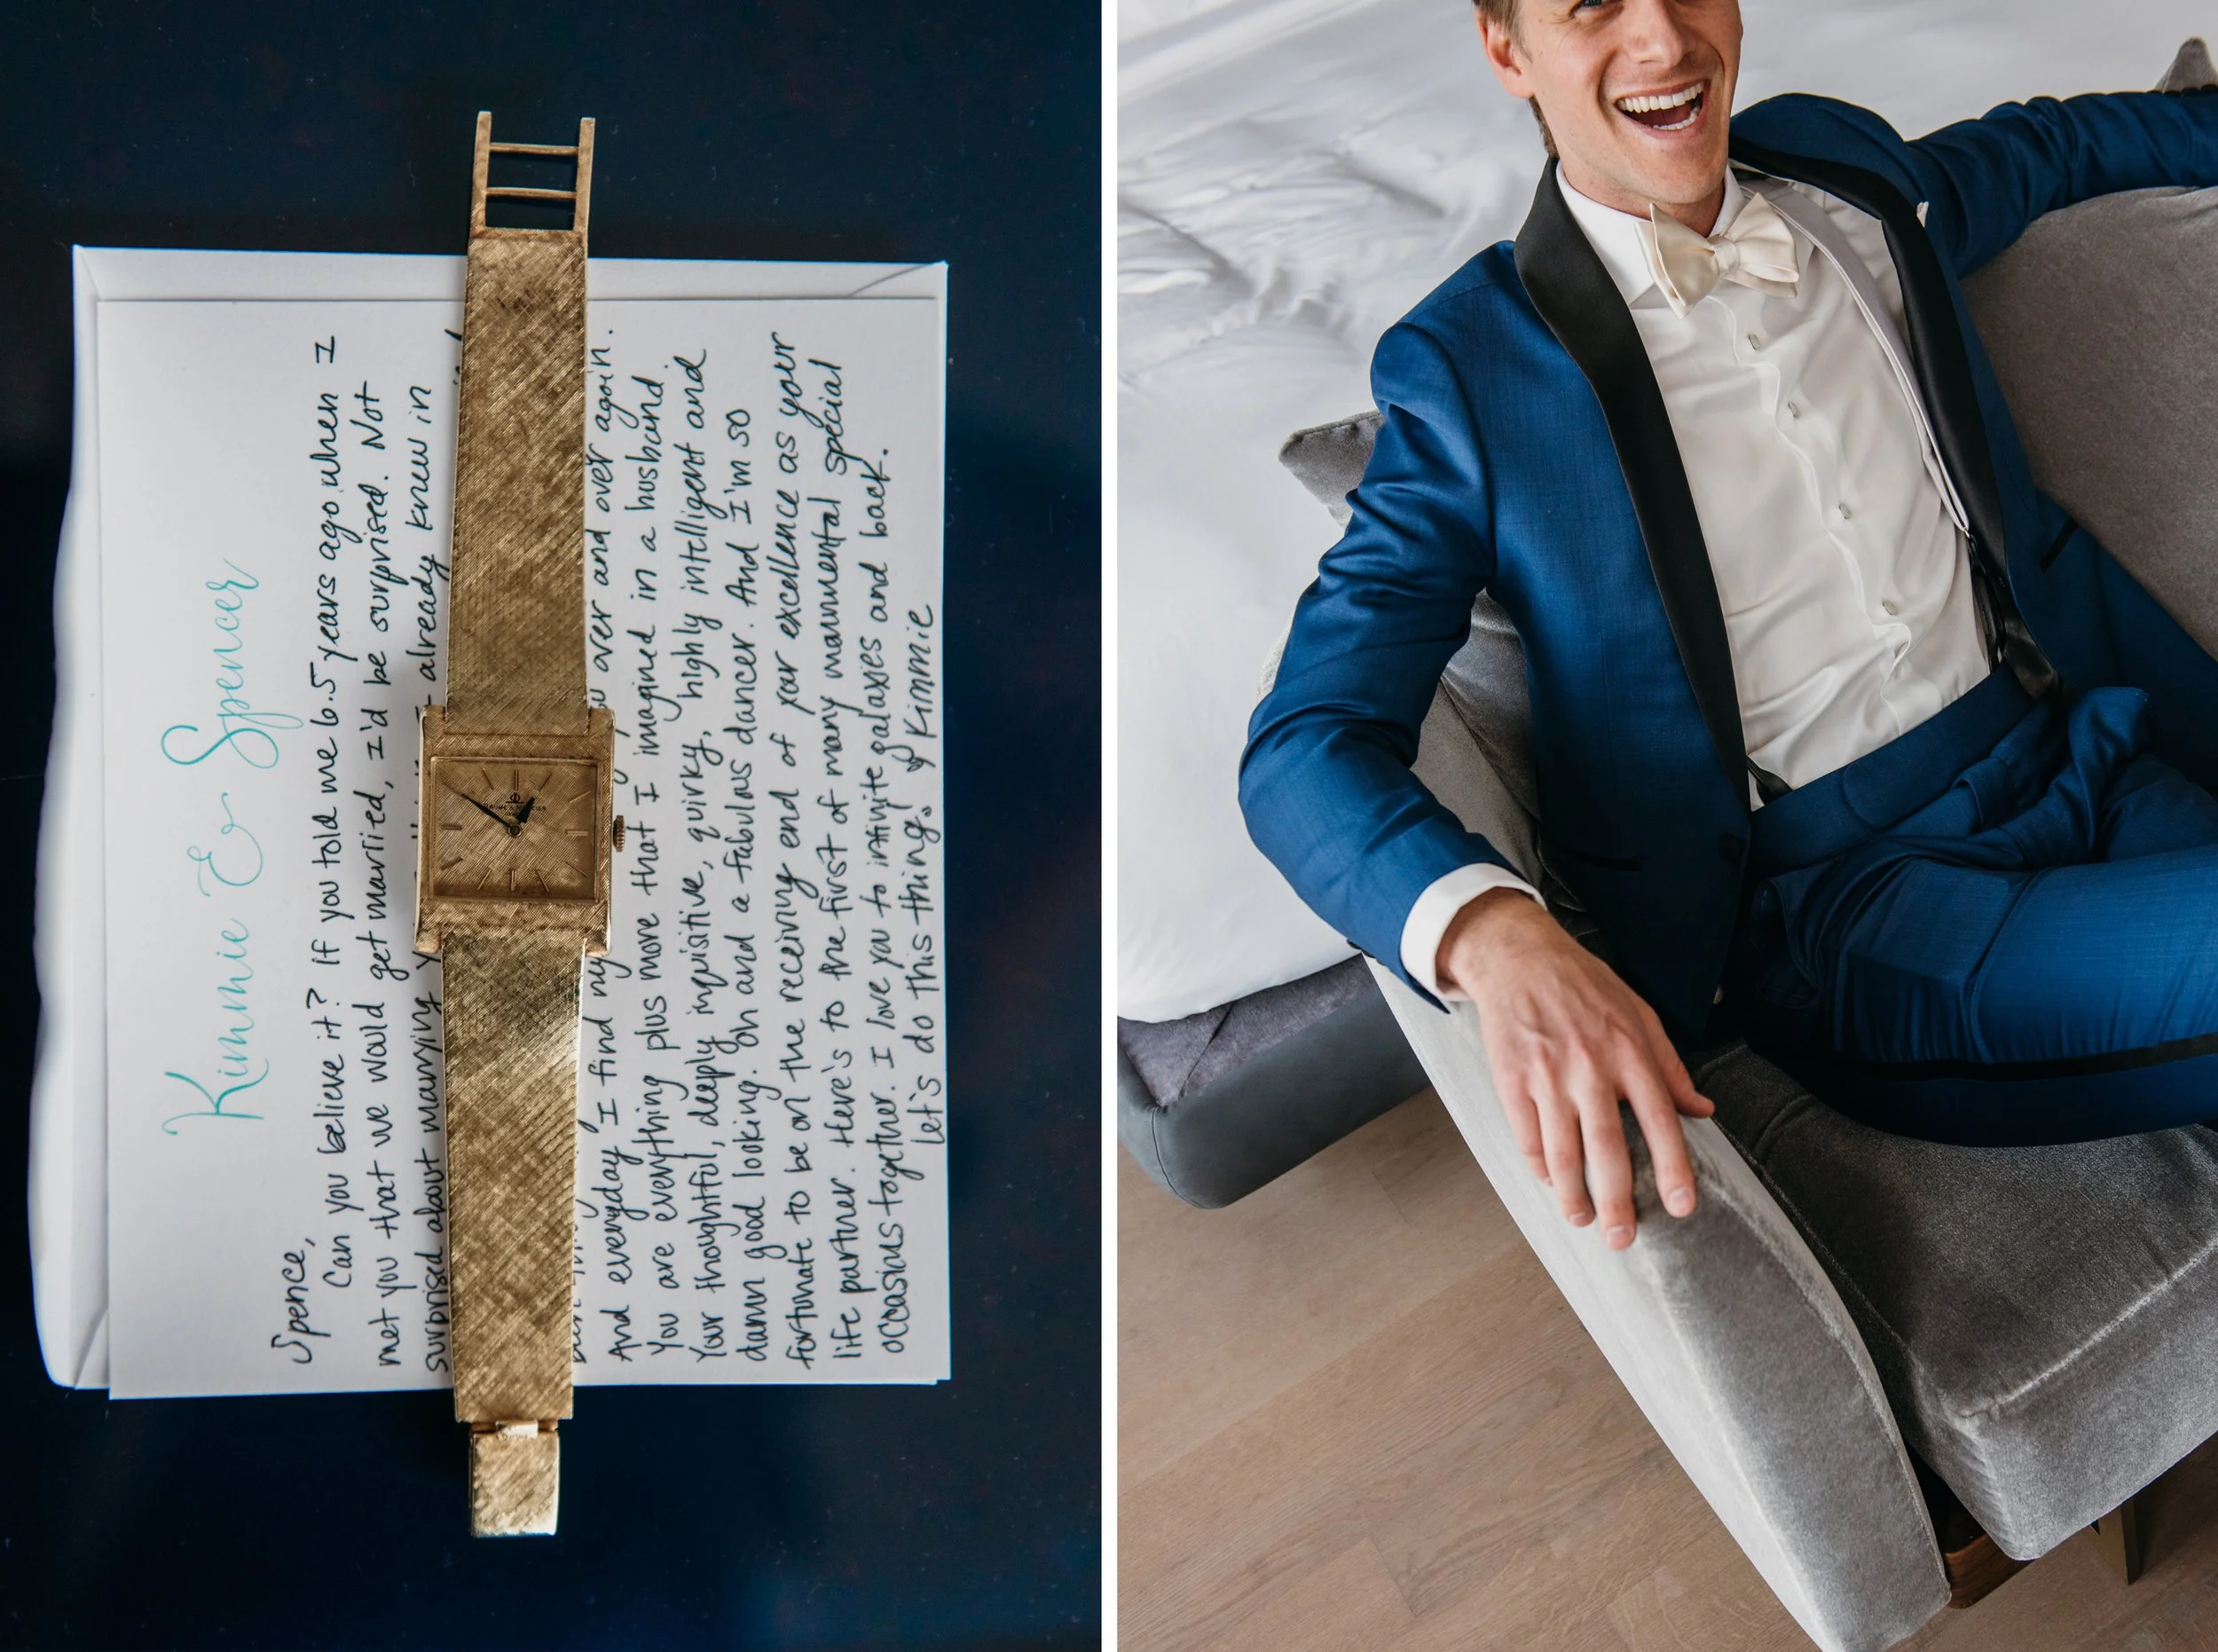 Kimmie & Spencer
Spence,
Can you believe it? If you told me 6.5 years ago when I
met you that we would get married, I'd be surprised. Not
surprised about marrying already knew in
over and over again.
And everyday I find my
You are everything plus more that I imagined in a husband.
Your thoughtful, deeply inquisitive, quirky, highly intelligent and
damn good looking. Oh and a fabulous dancer. And I'm so
fortunate to be on the receiving end of your excellence as your
life partner. Here's to the first of many monumental special
occasions together. I love you to infinite galaxies and back.
Let's do this thing. Kimmie
BAUME & MERCIER